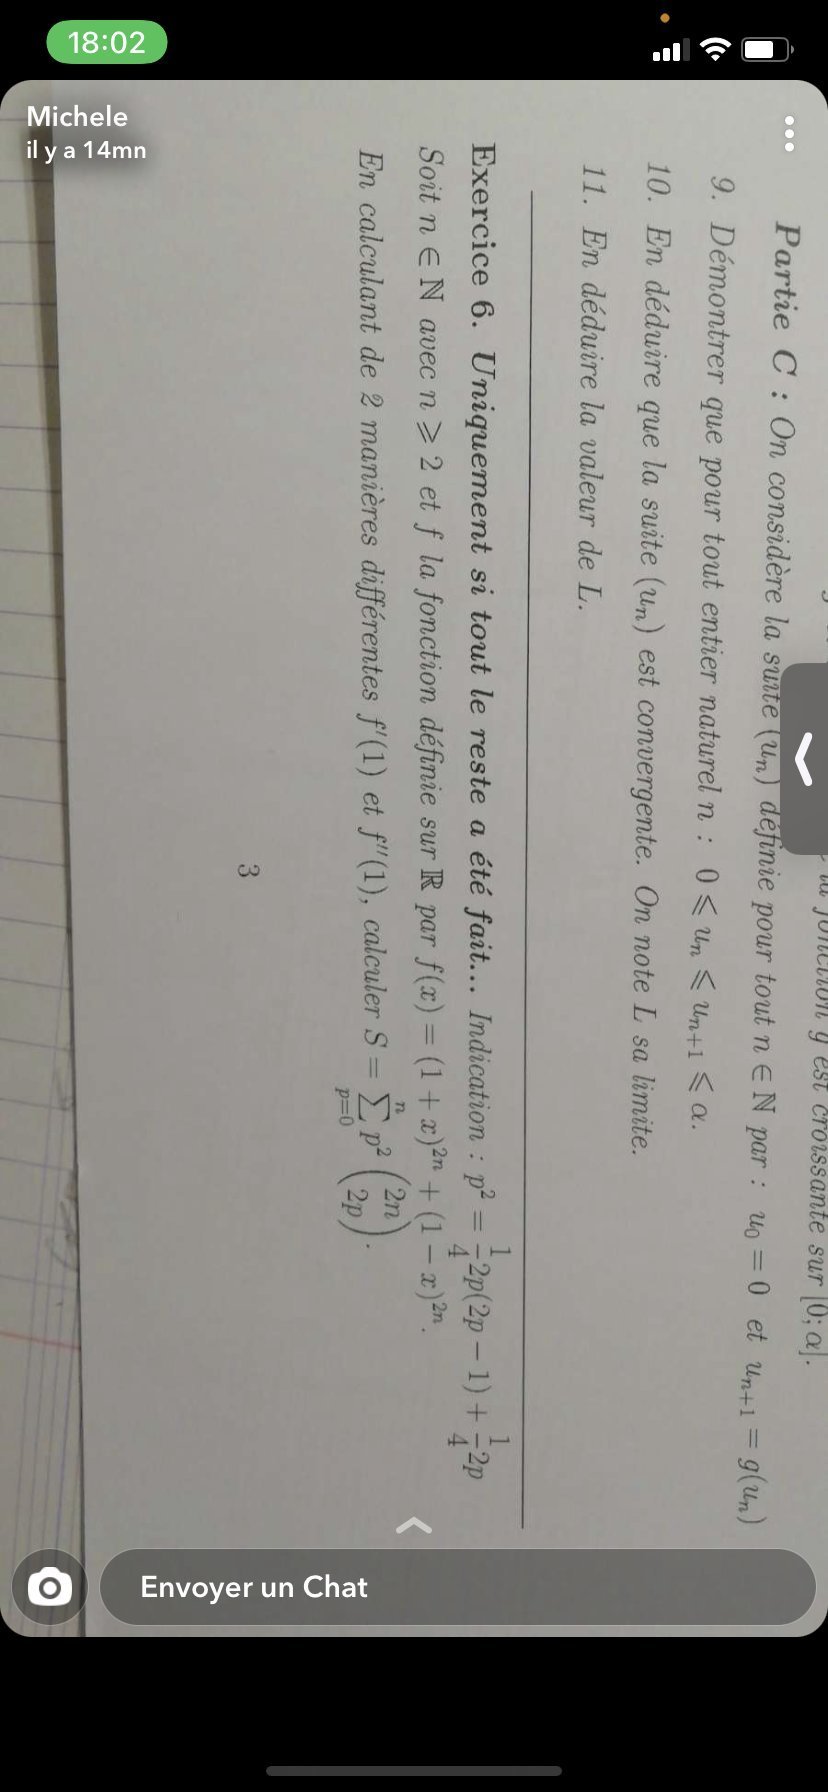 18:02
Michele
il y a 14mn
la fonction g est croissante sur [0; α].
Partie C : On considère la suite (uₙ) définie pour tout n ∈ ℕ par : u₀ = 0 et uₙ₊₁ = g(uₙ)
9. Démontrer que pour tout entier naturel n : 0 ⩽ uₙ ⩽ uₙ₊₁ ⩽ α.
10. En déduire que la suite (uₙ) est convergente. On note L sa limite.
11. En déduire la valeur de L.
Exercice 6. Uniquement si tout le reste a été fait... Indication : p² = 1/4 2p(2p − 1) + 1/4 2p
Soit n ∈ ℕ avec n ⩾ 2 et f la fonction définie sur ℝ par f(x) = (1 + x)²ⁿ + (1 − x)²ⁿ.
En calculant de 2 manières différentes f′(1) et f″(1), calculer S = ∑ₚ₌₀ⁿ p² (2n 2p).
3
Envoyer un Chat